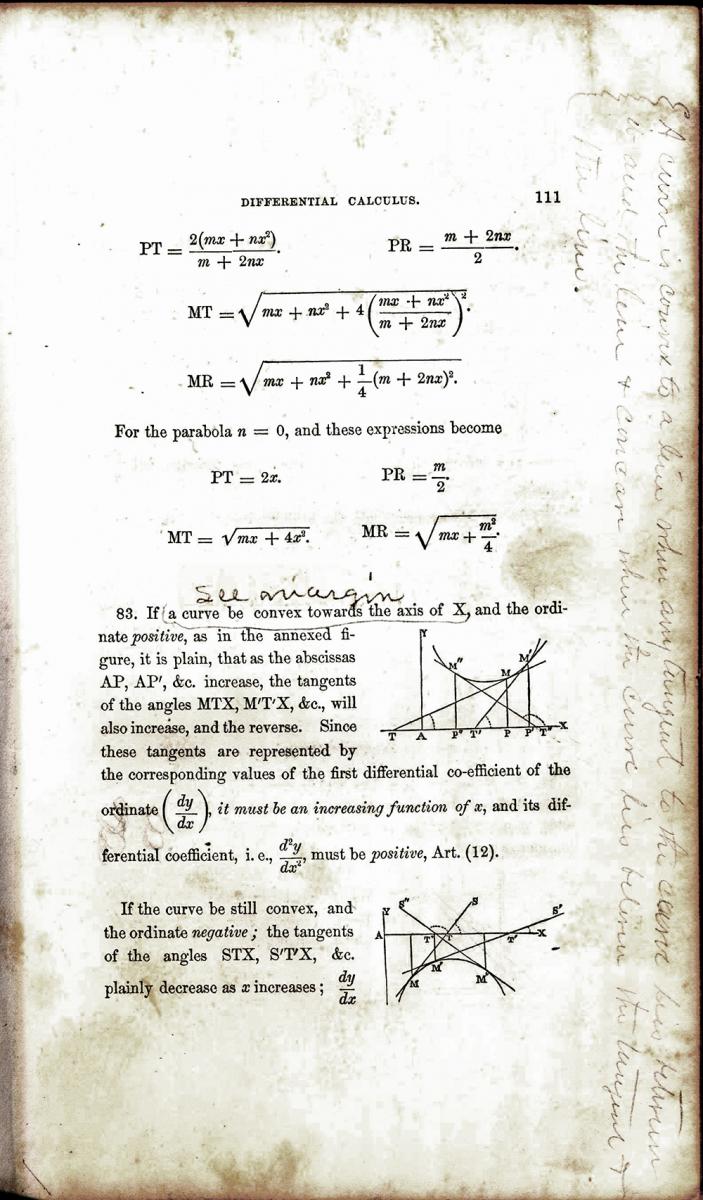 DIFFERENTIAL CALCULUS. 111
PT = 2(mx + nx²) / m + 2nx. PR = m + 2nx / 2.
MT = √mx + nx² + 4(mx + nx² / m + 2nx)².
MR = √mx + nx² + 1/4(m + 2nx)².
For the parabola n = 0, and these expressions become
PT = 2x. PR = m/2.
MT = √mx + 4x². MR = √mx + m²/4.
See margin
83. If a curve be convex towards the axis of X, and the ordi-
nate positive, as in the annexed fi-
gure, it is plain, that as the abscissas
AP, AP′, &c. increase, the tangents
of the angles MTX, M′T′X, &c., will
also increase, and the reverse. Since
these tangents are represented by
Y
M″ M M′
T A P″ T′ P P′ T″ X
the corresponding values of the first differential co-efficient of the
ordinate (dy/dx), it must be an increasing function of x, and its dif-
ferential coefficient, i. e., d²y/dx², must be positive, Art. (12).
If the curve be still convex, and
the ordinate negative; the tangents
of the angles STX, S′T′X, &c.
plainly decrease as x increases; dy/dx
Y S″ S S′
A T′ X
M M′
A curve is convex to a line when any tangent to the same lies between
it and the line & concave when the curve lies between the tangent &
the line.